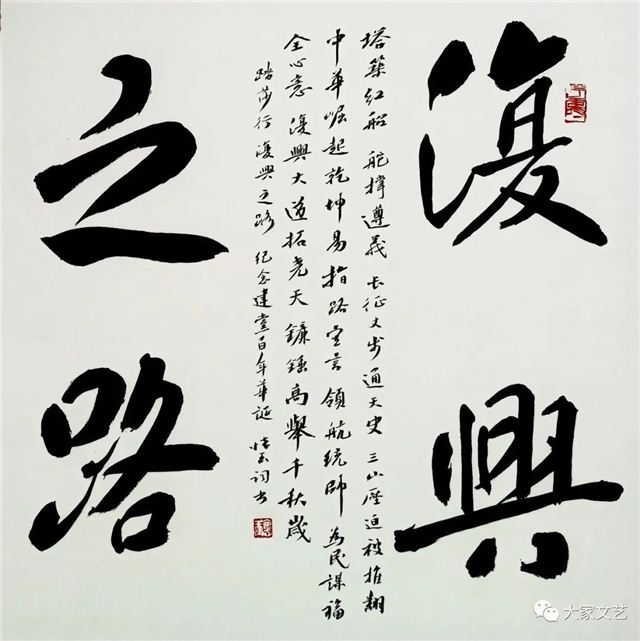 復興
塔築紅船 舵 遵義 长征丈步通天史 三山壓迫被推翻
中華崛起乾坤易 指路宣言 領航統帥 為民謀福
全心意 復興大道拓堯天 鐮錘高舉千秋歲
踏莎行 復興之路 纪念建黨百年華誕 词书
之路
大家文艺